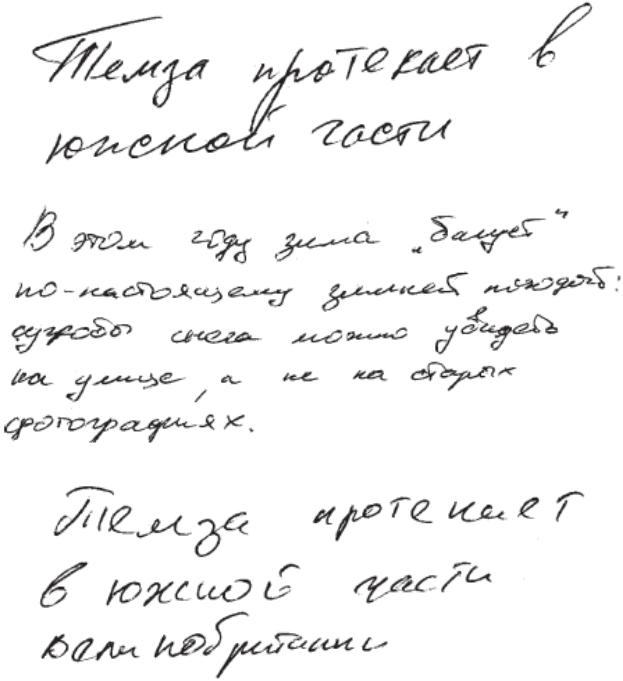 Темза протекает в
южной части
В этом году зима „балует“
по-настоящему зимней погодой:
сугробы снега можно увидеть
на улице, а не на старых
фотографиях.
Темза протекает
в южной части
Великобритании